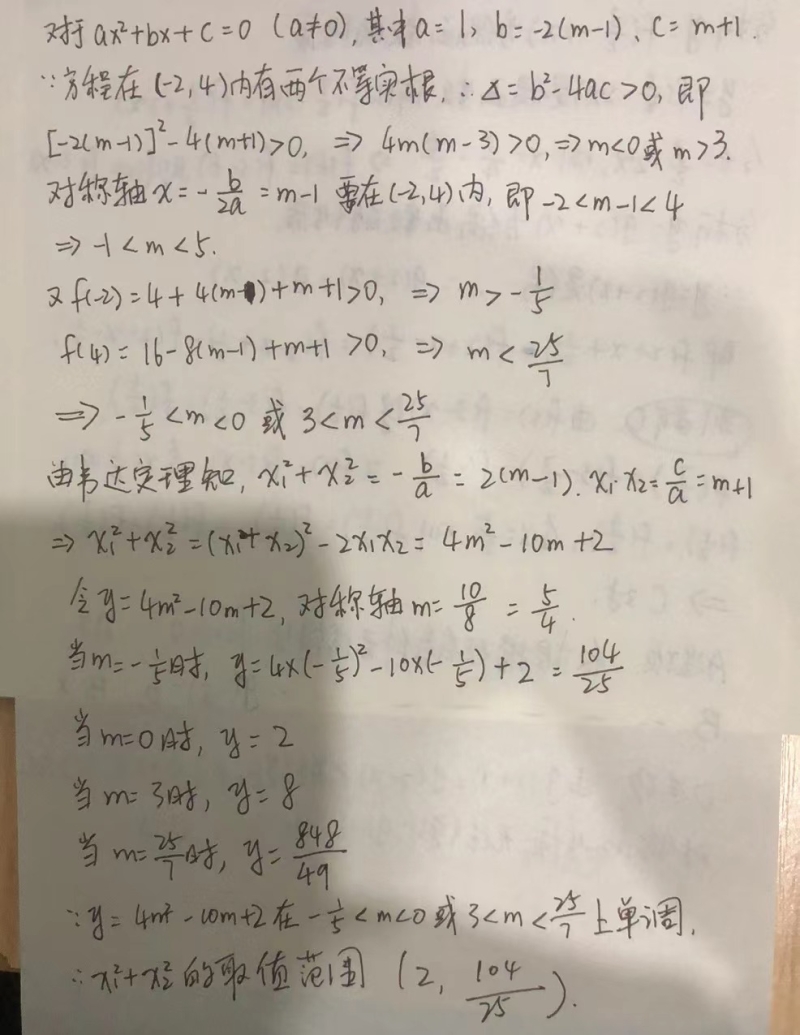 对于 ax²+bx+c=0 (a≠0), 其中 a=1, b=-2(m-1)、c=m+1.
∵方程在(-2,4)内有两个不等实根, ∴Δ=b²-4ac>0, 即
[-2(m-1)]²-4(m+1)>0, ⇒ 4m(m-3)>0, ⇒ m<0或m>3.
对称轴 x=-b/2a=m-1 要在(-2,4)内, 即 -2<m-1<4
⇒ -1<m<5.
又 f(-2)=4+4(m-1)+m+1>0, ⇒ m>-1/5
f(4)=16-8(m-1)+m+1>0, ⇒ m<25/7
⇒ -1/5<m<0 或 3<m<25/7
由韦达定理知, x₁²+x₂²=-b/a=2(m-1). x₁·x₂=c/a=m+1
⇒ x₁²+x₂²=(x₁+x₂)²-2x₁x₂=4m²-10m+2
令 y=4m²-10m+2, 对称轴 m=10/8=5/4.
当m=-1/5时, y=4×(-1/5)²-10×(-1/5)+2=104/25
当m=0时, y=2
当m=3时, y=8
当m=25/7时, y=848/49
∵y=4m²-10m+2 在 -1/5<m<0 或 3<m<25/7 上单调,
∴x₁²+x₂²的取值范围 (2, 104/25).